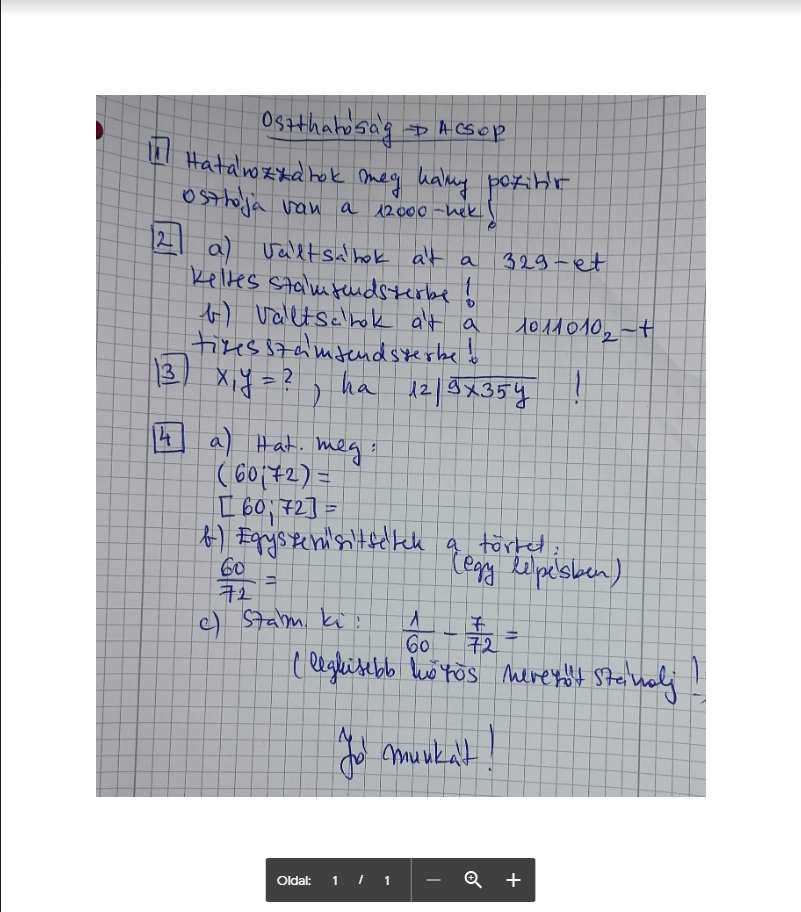 Oszthatóság → A csop
1 Határozzátok meg hány pozitív
osztója van a 12000-nek!
2 a) Váltsátok át a 329-et
kettes számrendszerbe!
b) Váltsátok át a 1011010₂-t
tízes számrendszerbe!
3 x,y = ? , ha 12|9x35y !
4 a) Hat. meg:
(60;72) =
[60;72] =
b) Egyszerűsítsétek a törtet:
(egy lépésben)
60/72 =
c) Szám. ki: 1/60 - 7/72 =
(legkisebb közös nevezőt használj!)
Jó munkát!
Oldal: 1 / 1 − +